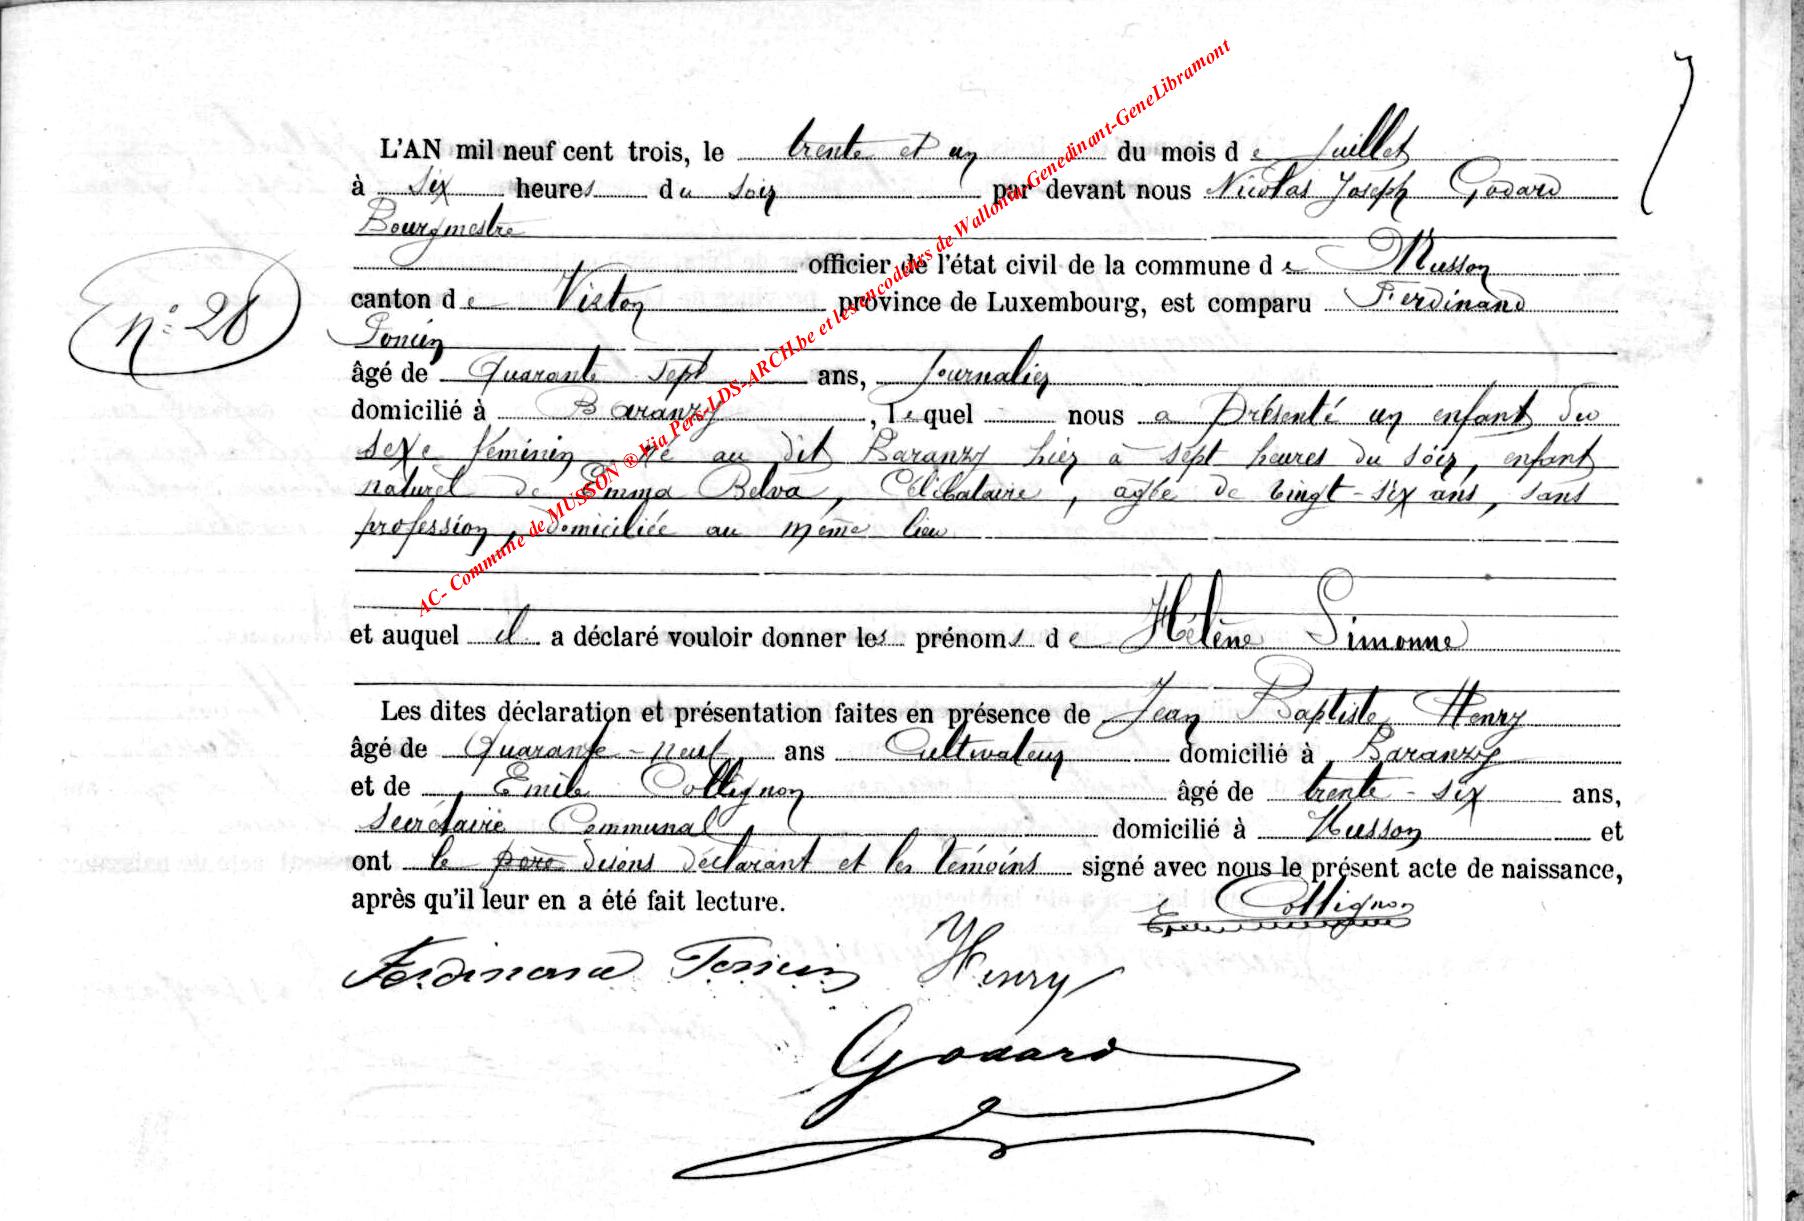 L'AN mil neuf cent trois, le trente et un du mois de Juillet
à six heures du soir par devant nous Nicolas Joseph Godard
Bourgmestre
officier de l'état civil de la commune de Musson
n°: 28
canton de Virton province de Luxembourg, est comparu Ferdinand
Poncin
âgé de Quarante sept ans, Journalier
domicilié à Baranzy, lequel nous a présenté un enfant du
sexe féminin né au dit Baranzy hier à sept heures du soir, enfant
naturel de Emma Belva, Célibataire, agée de vingt-six ans, sans
profession, domiciliée au même lieu
et auquel il a déclaré vouloir donner les prénoms de Hélène Simonne
Les dites déclaration et présentation faites en présence de Jean Baptiste Henry
âgé de Quarante-neuf ans Cultivateur domicilié à Baranzy
et de Emile Collignon âgé de trente-six ans,
secrétaire Communal domicilié à Musson et
ont le père disons déclarant et les témoins signé avec nous le présent acte de naissance,
après qu'il leur en a été fait lecture.
E Collignon
Ferdinand Poncin Henry
Godard
AC- Commune de MUSSON ® Via Pers-LDS-ARCH.be et les encodeurs de Wallonia-Genedinant-GeneLibramont